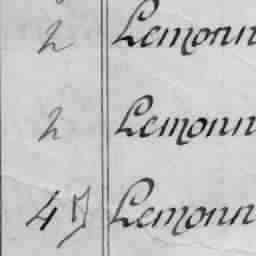 2 Lemonn
2 Lemonn
45 Lemonn